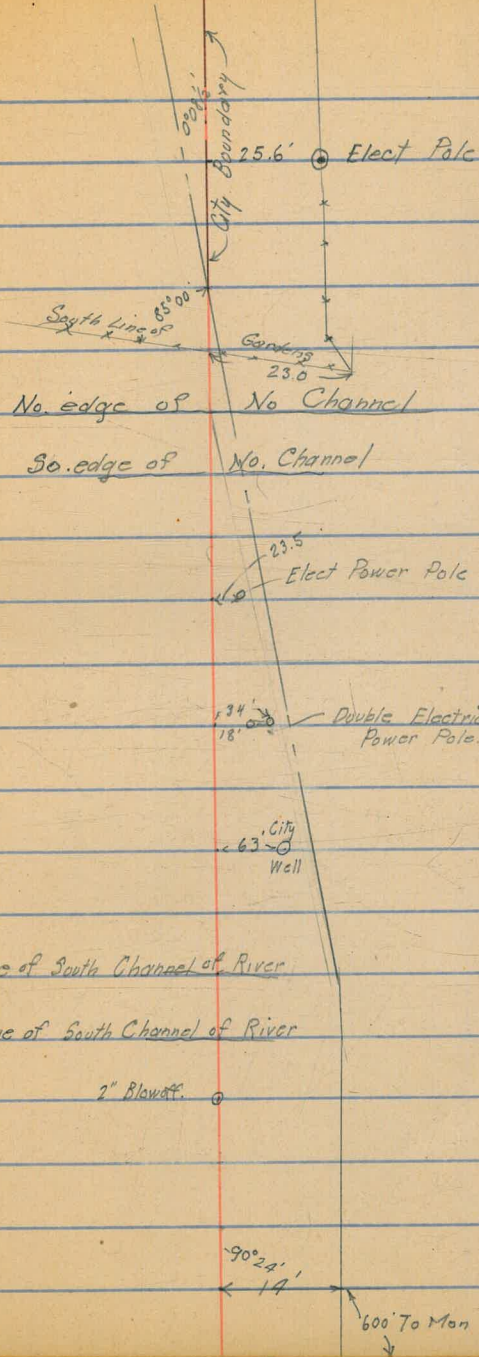 0°08½'
City Boundary
25.6' Elect Pole
85°00'
South Line of Gardens
23.0
No. edge of No Channel
So. edge of No. Channel
23.5
Elect Power Pole
34'
18'
Double Electric
Power Pole.
City
63
Well
e of South Channel of River
e of South Channel of River
2" Blowoff.
90°24'
14'
600' To Mon